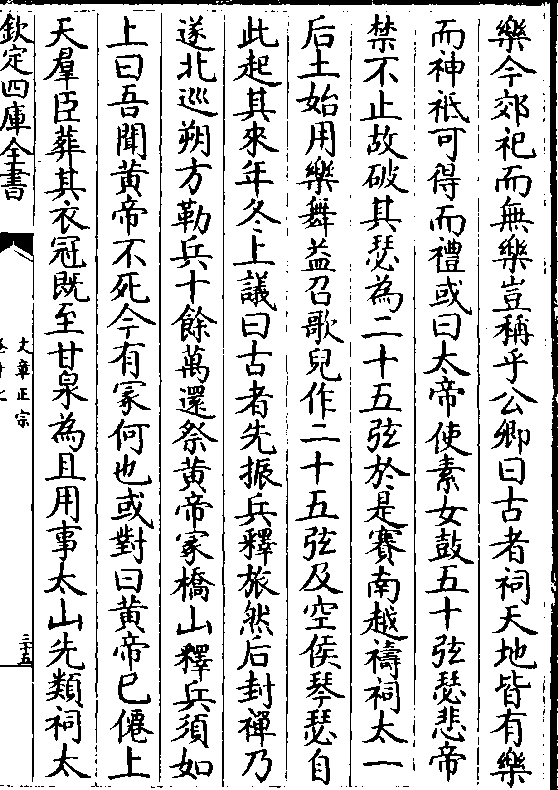 樂今郊祀而無樂豈稱乎公卿曰古者祠天地皆有樂
而神祇可得而禮或曰太帝使素女鼓五十弦瑟悲帝
禁不止故破其瑟為二十五弦於是賽南越禱祠太一
后土始用樂舞益召歌兒作二十五弦及空侯琴瑟自
此起其來年冬上議曰古者先振兵釋旅然后封禪乃
遂北巡朔方勒兵十餘萬還祭黃帝冢橋山釋兵須如
上曰吾聞黃帝不死今有冢何也或對曰黃帝已僊上
天羣臣葬其衣冠既至甘泉為且用事太山先類祠太
欽定四庫全書
文章正宗
三十五